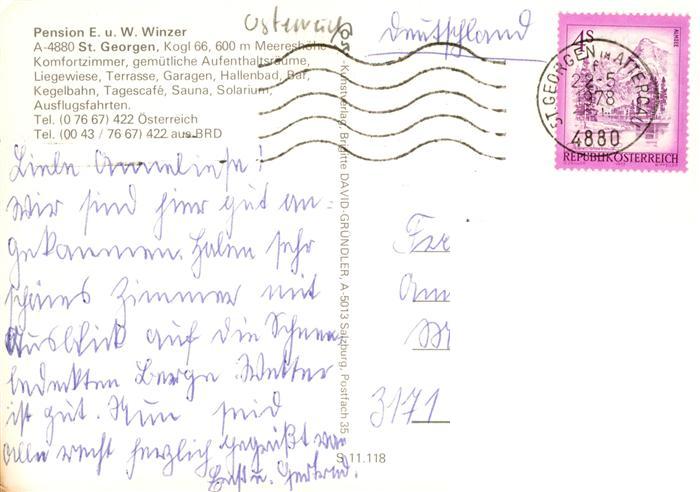 Pension E. u. W. Winzer
A-4880 St. Georgen, Kogl 66, 600 m Meereshöhe
Komfortzimmer, gemütliche Aufenthaltsräume,
Liegewiese, Terrasse, Garagen, Hallenbad, Bar,
Kegelbahn, Tagescafé, Sauna, Solarium,
Ausflugsfahrten.
Tel. (0 76 67) 422 Österreich
Tel. (00 43 / 76 67) 422 aus BRD
Österreich
Deutschland
Liebe Anneliese!
Wir sind hier gut an-
gekommen. Haben sehr
schönes Zimmer mit
Ausblick auf die Schnee
bedeckten Berge. Wetter
ist gut. Nun seid
alle recht herzlich gegrüßt von
u. Gertrud.
-Kunstverlag, Brigitte DAVID-GRÜNDLER, A-5013 Salzburg, Postfach 35
S 11.118
4S
ALMSEE
REPUBLIK ÖSTERREICH
ST. GEORGEN IM ATTERGAU
22.-5
978
4880
Am
3171